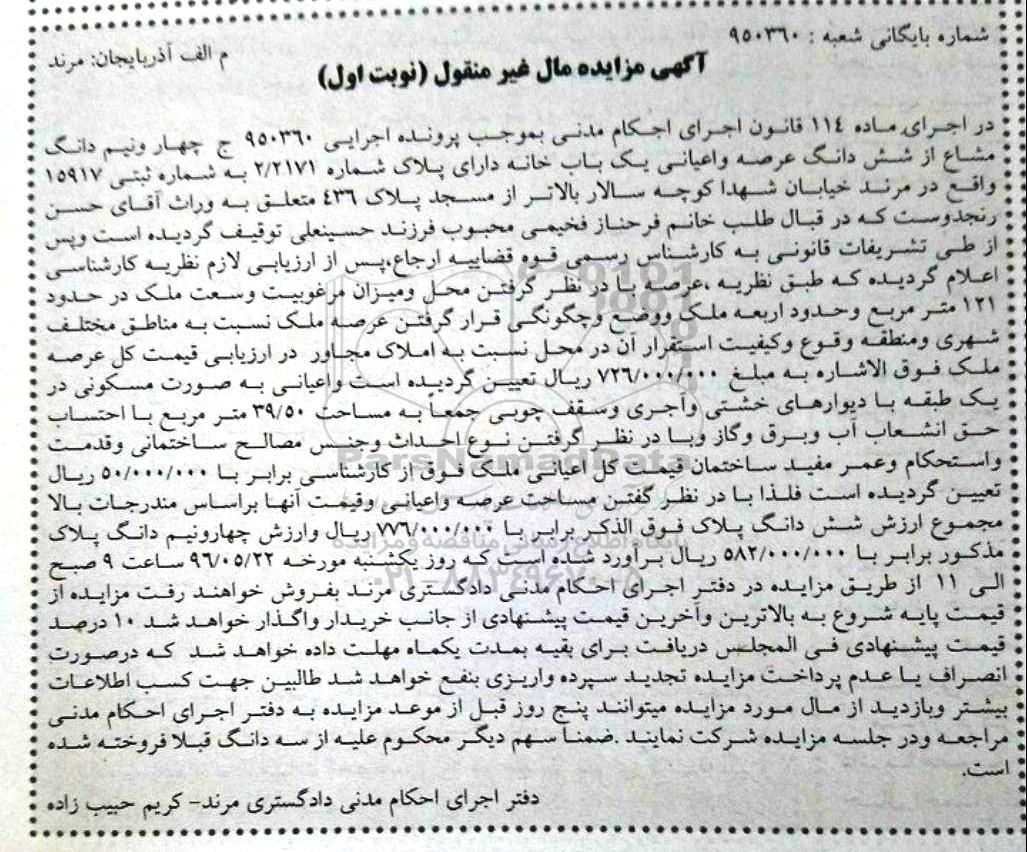 شماره بایگانی شعبه : ۹۵۰۳۶۰
م الف آذربایجان: مرند
آگهی مزایده مال غیر منقول (نوبت اول)
در اجرای ماده ۱۱٤ قانون اجرای احکام مدنی بموجب پرونده اجرایی ۹۵۰۳۶۰ ج چهار ونیم دانگ
مشاع از شش دانگ عرصه واعیانی یک باب خانه دارای پلاک شماره ۲/۲۱۷۱ به شماره ثبتی ۱۵۹۱۷
واقع در مرند خیابان شهدا کوچه سالار بالاتر از مسجد پلاک ٤۳٦ متعلق به وراث آقای حسن
رنجدوست که در قبال طلب خانم فرحناز فخیمی محبوب فرزند حسینعلی توقیف گردیده است وپس
از طی تشریفات قانونی به کارشناس رسمی قوه قضاییه ارجاع،پس از ارزیابی لازم نظریه کارشناسی
اعلام گردیده که طبق نظریه ،عرصه با در نظر گرفتن محل ومیزان مرغوبیت وسعت ملک در حدود
۱۲۱ متر مربع وحدود اربعه ملک ووضع وچگونگی قرار گرفتن عرصه ملک نسبت به مناطق مختلف
شهری ومنطقه وقوع وکیفیت استقرار آن در محل نسبت به املاک مجاور در ارزیابی قیمت کل عرصه
ملک فوق الاشاره به مبلغ ۷۲٦/۰۰۰/۰۰۰ ریال تعیین گردیده است واعیانی به صورت مسکونی در
یک طبقه با دیوارهای خشتی وآجری وسقف چوبی جمعاً به مساحت ۳۹/۵۰ متر مربع با احتساب
حق انشعاب آب وبرق وگاز وبا در نظر گرفتن نوع احداث وجنس مصالح ساختمانی وقدمت
واستحکام وعمر مفید ساختمان قیمت کل اعیانی ملک فوق از کارشناسی برابر با ۵۰/۰۰۰/۰۰۰ ریال
تعیین گردیده است فلذا با در نظر گفتن مساحت عرصه واعیانی وقیمت آنها براساس مندرجات بالا
مجموع ارزش شش دانگ پلاک فوق الذکر برابر با ۷۷٦/۰۰۰/۰۰۰ ریال وارزش چهارونیم دانگ پلاک
مذکور برابر با ۵۸۲/۰۰۰/۰۰۰ ریال برآورد شده است که روز یکشنبه مورخه ۹٦/۰۵/۲۲ ساعت ۹ صبح
الی ۱۱ از طریق مزایده در دفتر اجرای احکام مدنی دادگستری مرند بفروش خواهند رفت مزایده از
قیمت پایه شروع به بالاترین وآخرین قیمت پیشنهادی از جانب خریدار واگذار خواهد شد ۱۰ درصد
قیمت پیشنهادی فی المجلس دریافت برای بقیه بمدت یکماه مهلت داده خواهد شد که درصورت
انصراف یا عدم پرداخت مزایده تجدید سپرده واریزی بنفع خواهد شد طالبین جهت کسب اطلاعات
بیشتر وبازدید از مال مورد مزایده میتوانند پنج روز قبل از موعد مزایده به دفتر اجرای احکام مدنی
مراجعه ودر جلسه مزایده شرکت نمایند .ضمنا سهم دیگر محکوم علیه از سه دانگ قبلا فروخته شده
است.
دفتر اجرای احکام مدنی دادگستری مرند- کریم حبیب زاده
ParsNamadData